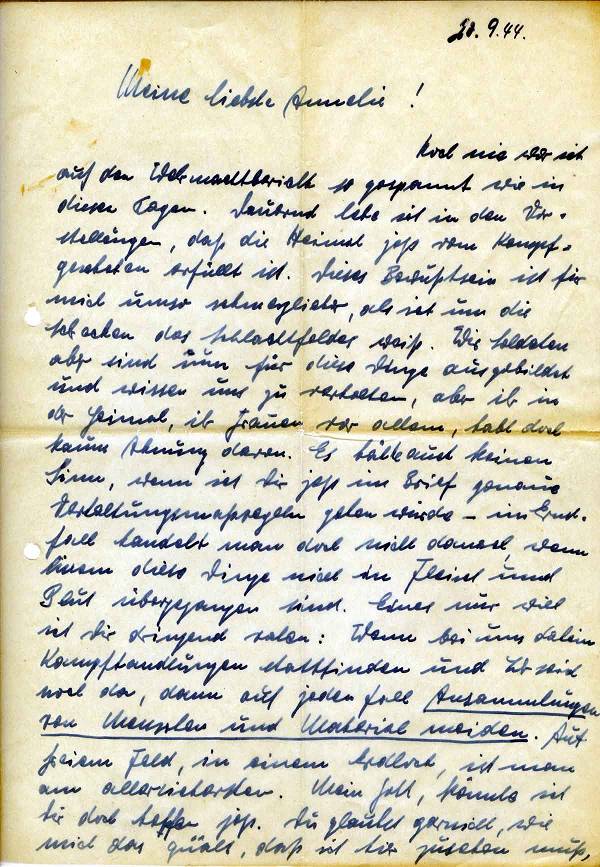 20.9.44.
Meine liebste Annelie!
Noch nie war ich
auf den Wehrmachtbericht so gespannt wie in
diesen Tagen. Dauernd lebe ich in den Vor-
stellungen, daß die Heimat jetzt vom Kampf-
geschehen erfüllt ist. Dieses Bewußtsein ist für
mich umso schmerzlicher, als ich um die
Schrecken des Schlachtfeldes weiß. Wir Soldaten
aber sind nun für diese Dinge ausgebildet
und wissen uns zu verhalten, aber ihr in
der Heimat, ihr Frauen vor allem, habt doch
kaum Ahnung davon. Es hätte auch keinen
Sinn, wenn ich Dir jetzt im Brief genaue
Verhaltungsmaßregeln geben würde – im Ernst-
fall handelt man doch nicht danach, wenn
einem diese Dinge nicht in Fleisch und
Blut übergegangen sind. Eines nur will
ich Dir dringend raten: Wenn bei uns daheim
Kampfhandlungen stattfinden und Ihr seid
noch da, dann auf jeden Fall Ansammlungen
von Menschen und Material meiden. Auf
freiem Feld, in einem Erdloch, ist man
am allersichersten. Mein Gott, könnte ich
Dir doch helfen jetzt. Du glaubst garnicht, wie
mich das quält, daß ich hier zusehen muß,